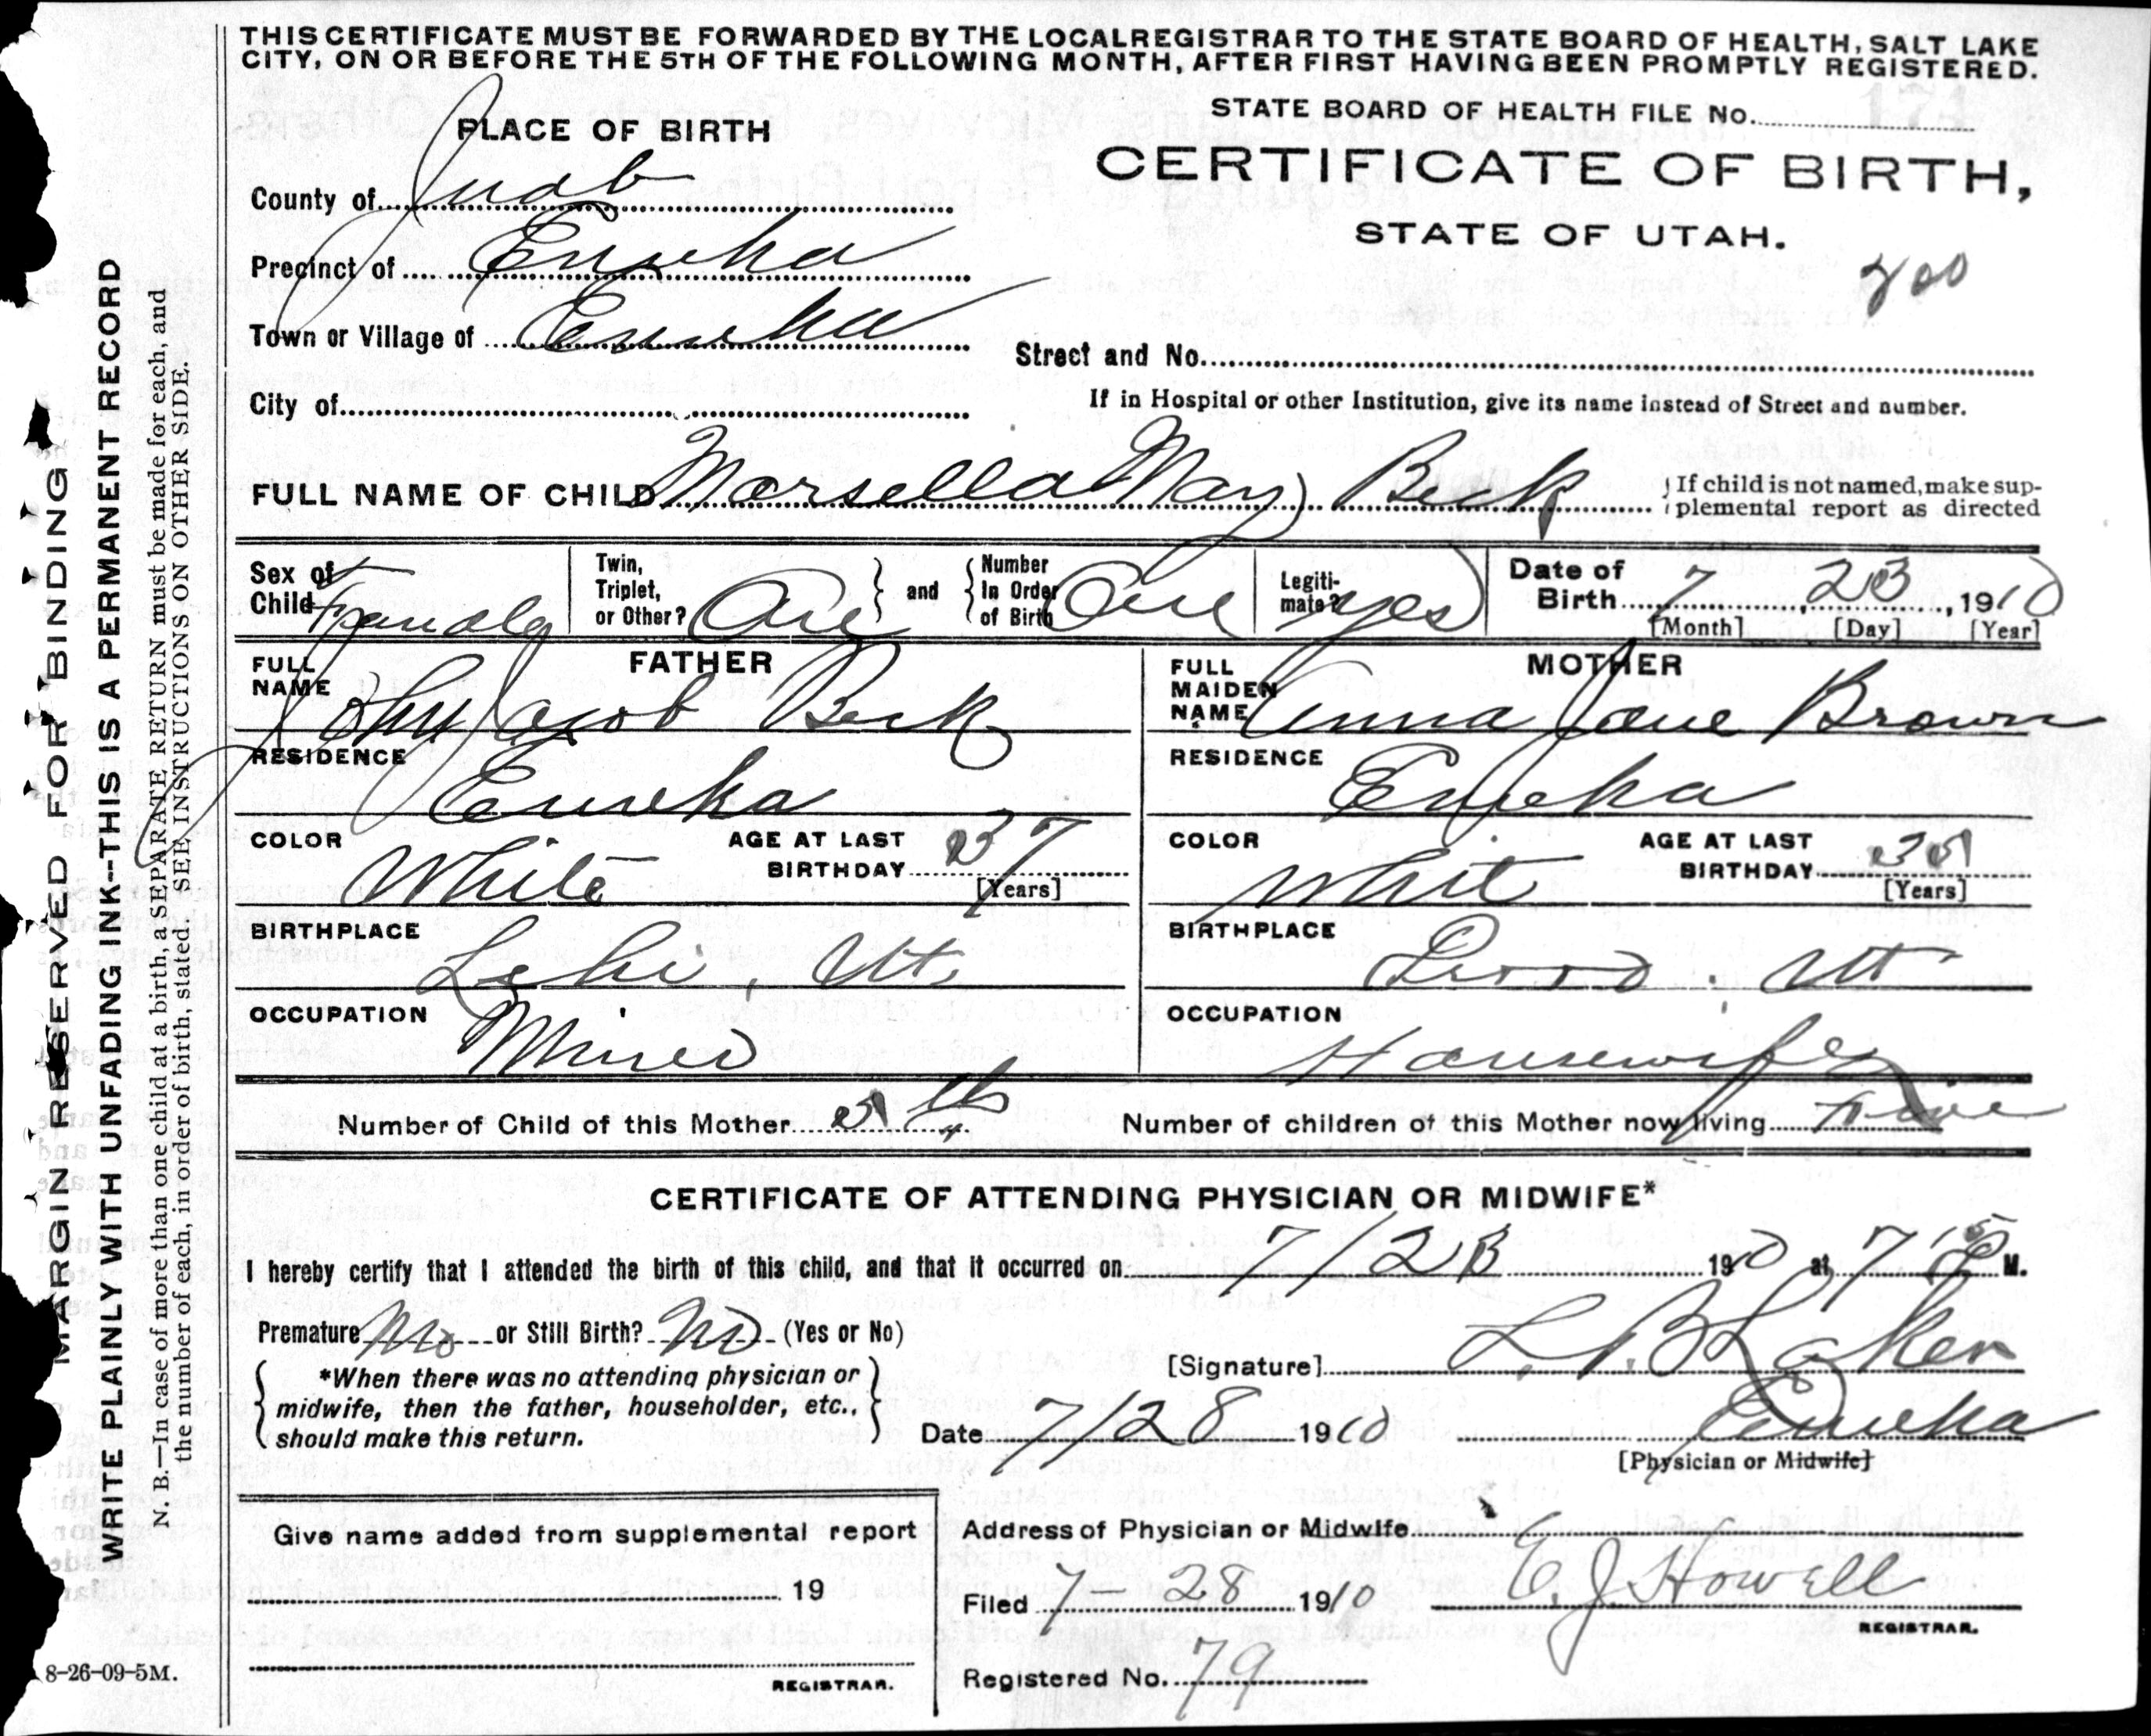 THIS CERTIFICATE MUST BE FORWARDED BY THE LOCAL REGISTRAR TO THE STATE BOARD OF HEALTH, SALT LAKE
CITY, ON OR BEFORE THE 5TH OF THE FOLLOWING MONTH, AFTER FIRST HAVING BEEN PROMPTLY REGISTERED.
STATE BOARD OF HEALTH FILE No.
PLACE OF BIRTH
CERTIFICATE OF BIRTH,
STATE OF UTAH.
County of Juab
Precinct of Eureka
Town or Village of Eureka
City of
200
Street and No.
If in Hospital or other Institution, give its name instead of Street and number.
FULL NAME OF CHILD Marsella May Beck
If child is not named, make sup-
plemental report as directed
Sex of Child Female
Twin, Triplet, or Other? One and Number In Order of Birth One
Legiti-mate? yes
Date of Birth 7, 23, 1910
[Month] [Day] [Year]
FATHER
FULL NAME John Jacob Beck
RESIDENCE Eureka
COLOR White AGE AT LAST BIRTHDAY 37 [Years]
BIRTHPLACE Lehi, Ut.
OCCUPATION Miner
MOTHER
FULL MAIDEN NAME Anna Jane Brown
RESIDENCE Eureka
COLOR Whit AGE AT LAST BIRTHDAY 35 [Years]
BIRTHPLACE Ut
OCCUPATION Housewife
Number of Child of this Mother 5th
Number of children of this Mother now living Five
CERTIFICATE OF ATTENDING PHYSICIAN OR MIDWIFE*
I hereby certify that I attended the birth of this child, and that it occurred on 7/23 1910 at 7 M.
Premature No or Still Birth? No (Yes or No)
*When there was no attending physician or
midwife, then the father, householder, etc.,
should make this return.
[Signature] L. B. Laker
Date 7/28 1910 Eureka
[Physician or Midwife]
Give name added from supplemental report
19
REGISTRAR.
Address of Physician or Midwife
Filed 7 28 1910 E. J. Howell
REGISTRAR.
Registered No. 79
8-26-09-5M.
MARGIN RESERVED FOR BINDING
WRITE PLAINLY WITH UNFADING INK--THIS IS A PERMANENT RECORD
N. B.—In case of more than one child at a birth, a SEPARATE RETURN must be made for each, and
the number of each, in order of birth, stated. SEE INSTRUCTIONS ON OTHER SIDE.